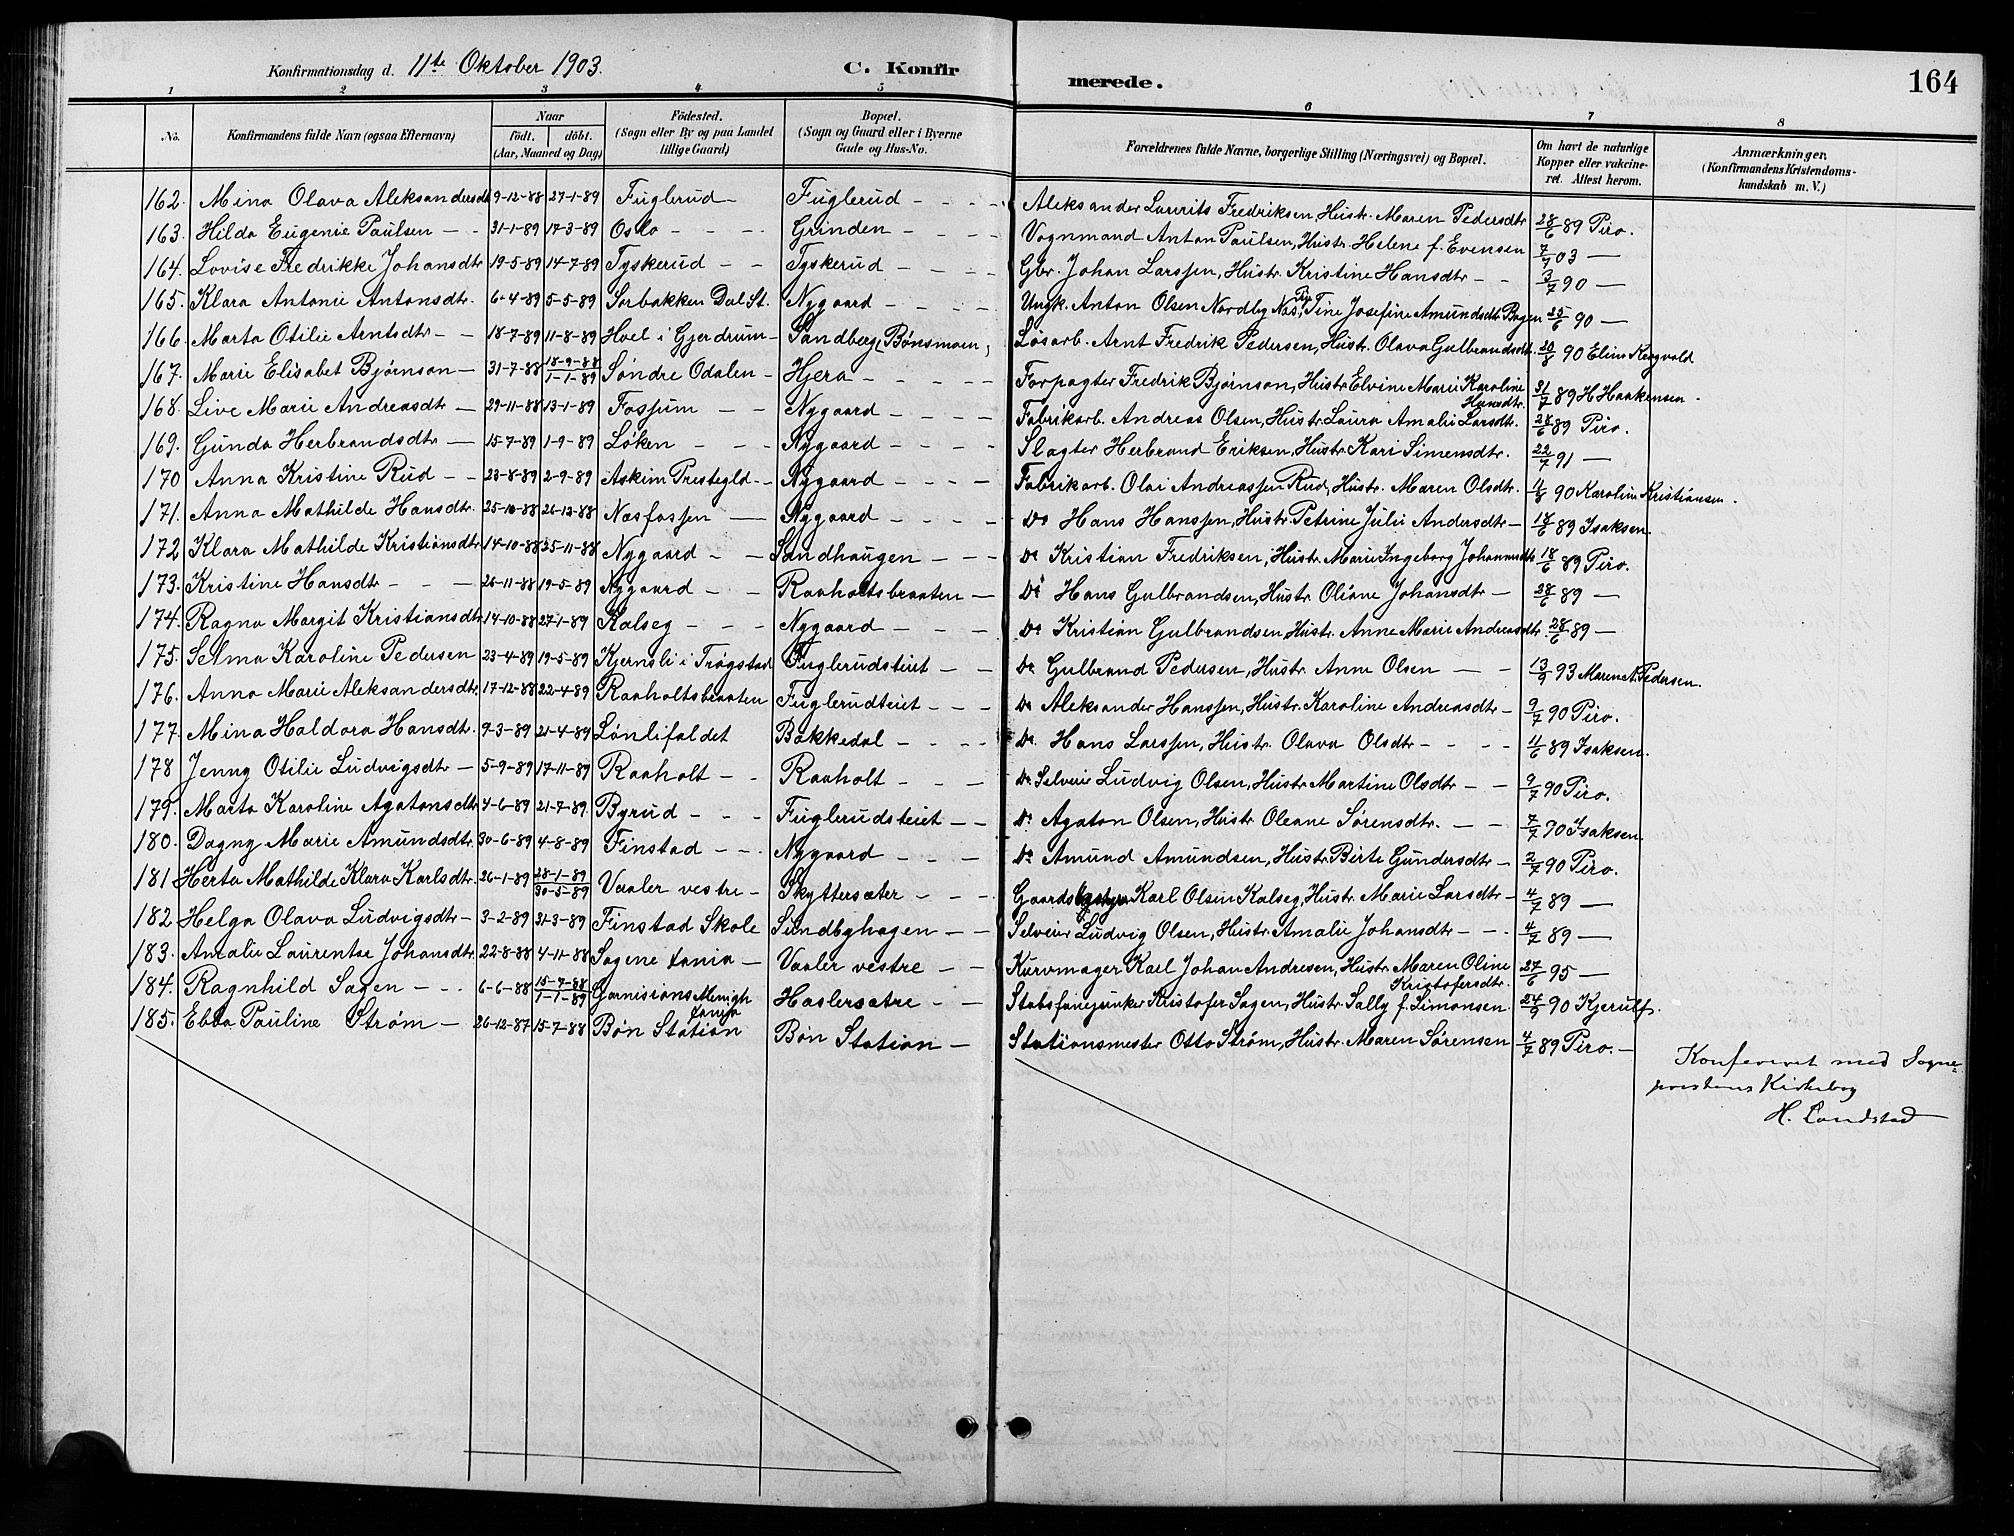 Konfirmationsdag d. 11te Oktober 1903.
C. Konfirmerede.
164
1 2 3 4 5 6 7 8
No. Konfirmandens fulde Navn (ogsaa Efternavn) Naar födt. döbt. (Aar, Maaned og Dag) Födested. (Sogn eller By og paa Landet tillige Gaard) Bopæl. (Sogn og Gaard eller i Byerne Gade og Hus-No. Forældrenes fulde Navne, borgerlige Stilling (Næringsvei) og Bopæl. Om havt de naturlige Kopper eller vakcineret. Attest herom. Anmærkninger. (Konfirmandens Kristendomskundskab m. V.)
162. Mina Olava Aleksandersdtr 9-12-88 27-1-89 Fuglerud - Fuglerud - - - Aleksander Laurits Fredriksen, Hustr. Maren Pedersdtr 28/6 89 Piro.
163. Hilda Eugenie Paulsen - - 31-1-89 17-3-89 Oslo - - - Grinden - - - Vognmand Anton Paulsen, Hustr. Helene f. Evensen 7/7 03 —
164. Lovise Fredrikke Johansdtr 19-5-89 14-7-89 Tyskerud - - Tyskerud - - - Gbr. Johan Larssen, Hustr. Kristine Hansdtr - - 3/7 90 —
165. Klara Antonie Antonsdtr. 6-4-89 5-5-89 Sorbakken Dal St. Nygaard - - - Ungk. Anton Olsen Nordby Næs, Pig. Tine Josefine Amundsdtr Bogen 25/6 90 —
166. Marta Otilie Arntsdtr - - 18-7-89 11-8-89 Hvel i Gjerdrum - Sandberg, Bønsmoen, Løsarb. Arnt Fredrik Pedersen, Hustr. Olava Gulbrandsdtr. 20/8 90 Eline Kergvald
167. Marie Elisabet Bjørnson - 31-7-88 18-9-88 / 1-1-89 Søndre Odalen - Hjera - - - - Forpagter Fredrik Bjørnson, Hustr Elvine Marie Karoline Hansdtr. 31/7 89 H Haakensen -
168. Live Marie Andreasdtr - 29-11-88 13-1-89 Fossum - - Nygaard - - - Fabrikarb. Andreas Olsen, Hustr Laura Amalie Larsdtr. 28/6 89 Piro.
169. Gunda Herbrandsdtr - 15-7-89 1-9-89 Løken - - - Nygaard - - - Slagter Herbrand Eriksen, Hustr. Kari Simensdtr. 22/7 91 —
170 Anna Kristine Rud - - 23-8-89 2-9-89 Askim Prestegld. - Nygaard - - - Fabrikarb. Olai Andreassen Rud, Hustr. Maren Olsdtr. 4/8 90 Karoline Kristiansen.
171. Anna Mathilde Hansdtr. 25-10-88 26-12-88 Næsfossen — Nygaard - - - Do Hans Hanssen, Hustr. Petrine Julie Andersdtr - 18/6 89 Isaksen.
172 Klara Mathilde Kristiansdtr 14-10-88 25-11-88 Nygaard - - Sandhaugen - - Do Kristian Fredriksen, Hustr Marie Ingeborg Johannsdtr 18/6 89 Piro.
173. Kristine Hansdtr - - - 26-11-88 19-5-89 Nygaard - - Raaholtsbraaten - Do Hans Gulbrandsen, Hustr. Oliane Johansdtr - 28/6 89 —
174. Ragna Margit Kristiansdtr 14-10-88 27-1-89 Kalseg - - - Nygaard - - - Do Kristian Gulbrandsen Hustr. Anne Marie Andreasdtr. 28/6 89 —
175. Selma Karoline Pedersen 23-4-89 19-5-89 Kjernsli i Trøgstad Fuglerudsteiet - - Do Gulbrand Pedersen, Hustr. Anne Olsen - - 13/9 93 Maren A. Pedersen.
176. Anna Marie Aleksandersdtr. 17-12-88 22-4-89 Raaholtsbraaten Fuglerudteiet - - - Do Aleksander Hanssen, Hustr. Karoline Andreasdtr - 9/7 90 Piro.
177. Mina Haldora Hansdtr. 9-3-89 21-4-89 Lønlifaldet Bakkedal - - - Do. Hans Larssen, Hustr. Olava Olsdtr - - - 11/6 89 Isaksen.
178 Jenny Otilie Ludvigsdtr - 5-9-89 17-11-89 Raaholt - - Raaholt - - - Do Selveier Ludvig Olsen, Hustr Martine Olsdtr - - 9/7 90 Piro.
179. Marta Karoline Agatonsdtr 4-6-89 21-7-89 Byrud - - - Fuglerudsteiet - - Do Agaton Olsen, Hustr Oleane Sørensdtr. - - 7/7 90 Isaksen.
180. Dagny Marie Amundsdtr. 30-6-89 4-8-89 Finstad - - - Nygaard - - - Do Amund Amundsen, Hustr. Birte Gundersdtr - 2/7 90 Piro.
181 Herta Mathilde Klara Karlsdtr. 26-1-89 28-1-89 / 30-5-89 Vaaler vestre - Skyttersæter - - - Gaardsbestyrer Karl Olsen Kalseg, Hustr. Marie Larsdtr - 4/7 89 —
182 Helga Olava Ludvigsdtr - 3-2-89 31-3-89 Finstad Skole Sundbyhagen - - Selveier Ludvig Olsen, Hustr. Amalie Johansdtr - - - 4/7 89 —
183. Amalie Laurentse Johansdtr 22-8-88 4-11-88 Sagene Xania - Vaaler vestre - - Kurvmager Karl Johan Andresen, Hustr. Maren Oline Kristofersdtr. 27/6 95 —
184. Ragnhild Sagen - - - 6-6-88 15-7-88 / 1-1-89 Garnisions Menigh Xania Haslersætre - - Stabsfanejunker Kristofer Sagen, Hustr Sally f. Simonsen 24/9 90 Kjerulf.
185. Ebba Pauline Strøm - 26-12-87 15-7-88 Bøn Station Bøn Station - Stationsmester Otto Strøm, Hustr. Maren Sørensen 4/7 89 Piro. -
Konfereret med Sogne-
prestens Kirkebog
H. Landstad